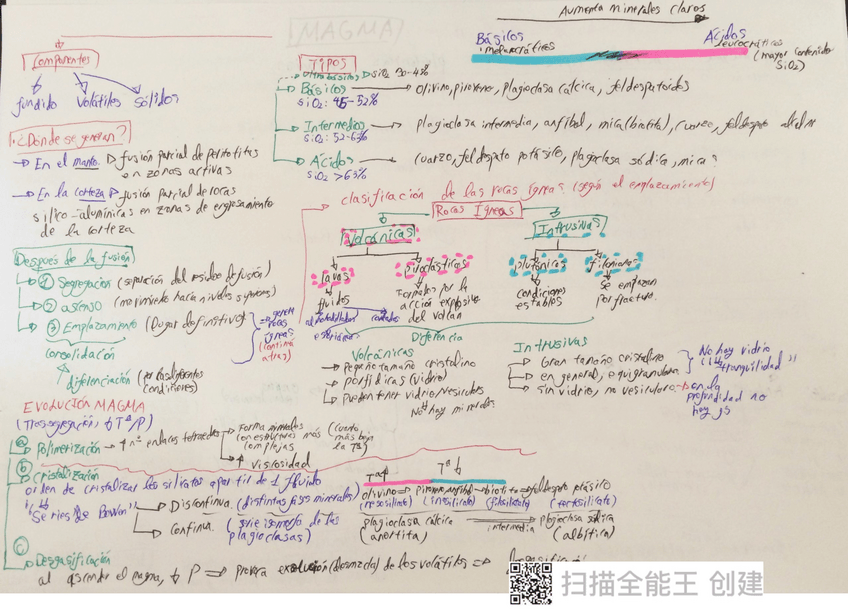 MAGMA
Aumenta minerales claros
Básicos
Ácidos
melanocráticos
leucocráticos
(mayor contenido
SiO2)
Componentes
fundido Volátiles Sólidos
¿Dónde se generan?
→ En el manto fusión parcial de peridotitas
en zonas activas
→ En la corteza fusión parcial de rocas
silico-alumínicas en zonas de engrosamiento
de la corteza
Después de la fusión
① Segregación (separación del residuo de fusión)
② ascenso (movimiento hacia niveles superiores)
③ Emplazamiento (lugar definitivo)
consolidación
diferenciación (por las diferentes
condiciones)
genera
rocas
ígneas
(continua
atras)
TIPOS
Ultrabásicos SiO2 30-45%
Básicos → olivino, piroxeno, plagioclasa cálcica, feldespatoides
SiO2: 45-52%
Intermedios → plagioclasa intermedia, anfíbol, mica (biotita), cuarzo, feldespato
SiO2: 52-63%
Ácidos → cuarzo, feldespato potásico, plagioclasa sódica, micas
SiO2 >63%
clasificación de las rocas ígneas (según el emplazamiento)
Rocas Ígneas
Volcánicas
Intrusivas
lavas
piroclásticas
plutónicas
filonianas
fluidos
Formados por la
acción explosiva
del volcan
condiciones
estables
Se emplazan
por fractura
Diferencia
Volcánicas
→ Pequeño tamaño cristalino
→ porfídicas (vidrio)
→ Pueden tener vidrio/vesículas
No hay minerales
Intrusivas
→ Gran tamaño cristalino
→ en general, equigranulares
→ Sin vidrio, no vesículas
No hay vidrio
tranquilidad"
en la
profundidad no
hay gs
EVOLUCIÓN MAGMA
(Tras segregación, ↓ Tª/P)
ⓐ Polimerización → ↑ nº enlaces tetraedros
→ Forma minerales
con estructuras más
complejas
(cuarzo,
más baja
la Tª)
→ ↑ viscosidad
ⓑ Cristalización
orden de cristalizar los silicatos a partir de 1 fluido
"Series de Bowen"
→ Discontinua. (distintas fases minerales)
→ Continua. (serie isomorfa de las
plagioclasas)
Tª↑ Tª↓
olivino → piroxeno, anfíbol → biotita → feldespato potásico
(nesosilicato) (inosilicato) (filosilicato) (tectosilicato)
plagioclasa cálcica → plagioclasa sódica
(anortita) intermedia (albítica)
ⓒ Desgasificación
al ascender el magma, ↓ P ⇒ provoca exsolución (desmezcla) de los volátiles ⇒
扫描全能王 创建